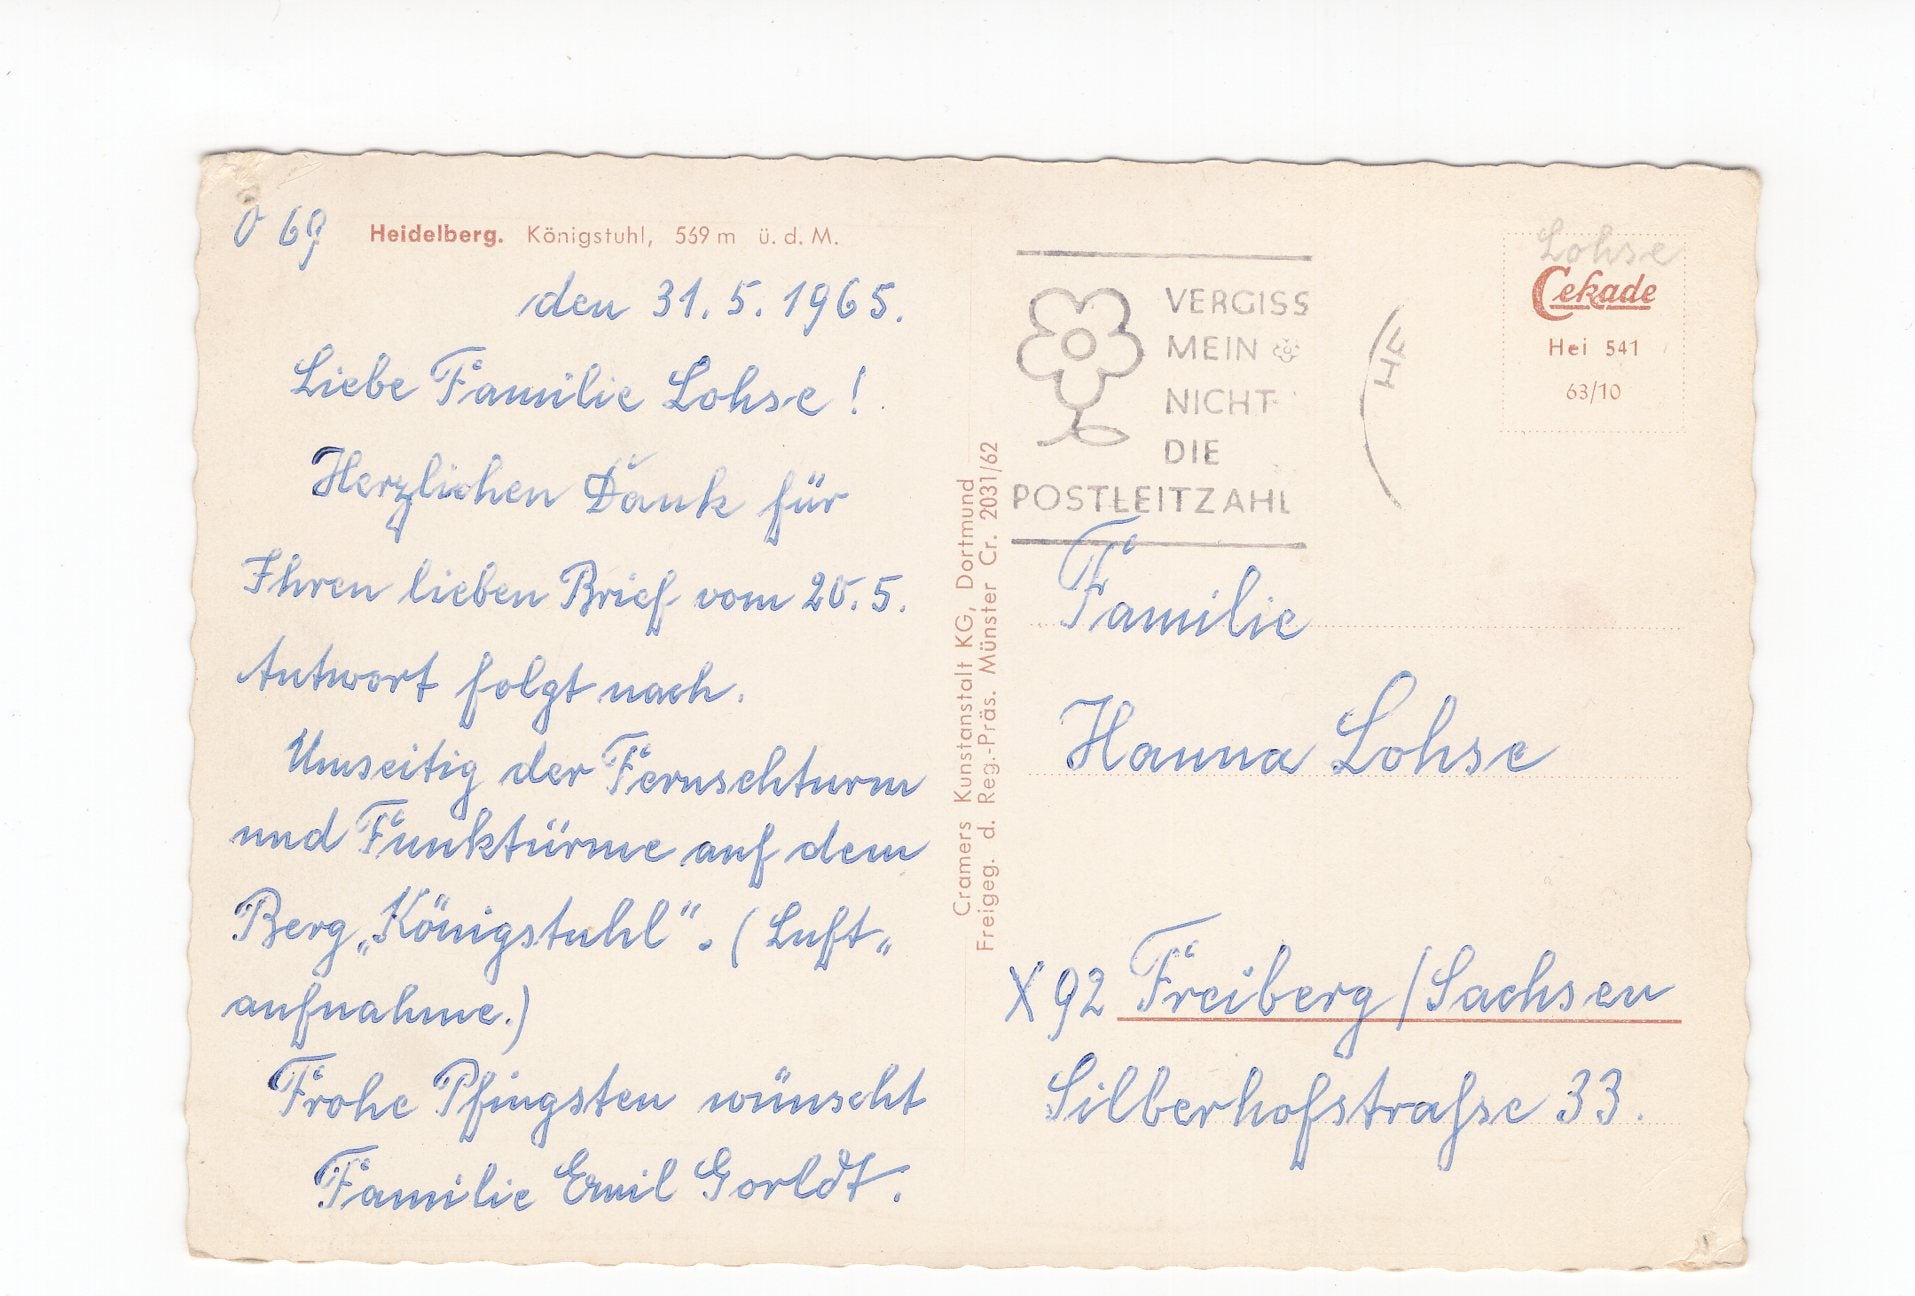 69
Heidelberg. Königstuhl, 569 m ü. d. M.
den 31. 5. 1965.
Liebe Familie Lohse!
Herzlichen Dank für
Ihren lieben Brief vom 20. 5.
Antwort folgt nach.
Umseitig der Fernsehturm
und Funktürme auf dem
Berg „Königstuhl“. (Luft„
aufnahme.)
Frohe Pfingsten wünscht
Familie Emil Gorldt.
Cramers Kunstanstalt KG, Dortmund
Freigeg. d. Reg.-Präs. Münster Cr. 2031/62
VERGISS
MEIN
NICHT
DIE
POSTLEITZAHL
Lohse
Cekade
Hei 541
63/10
Familie
Hanna Lohse
X 92 Freiberg/Sachsen
Silberhofstraße 33.